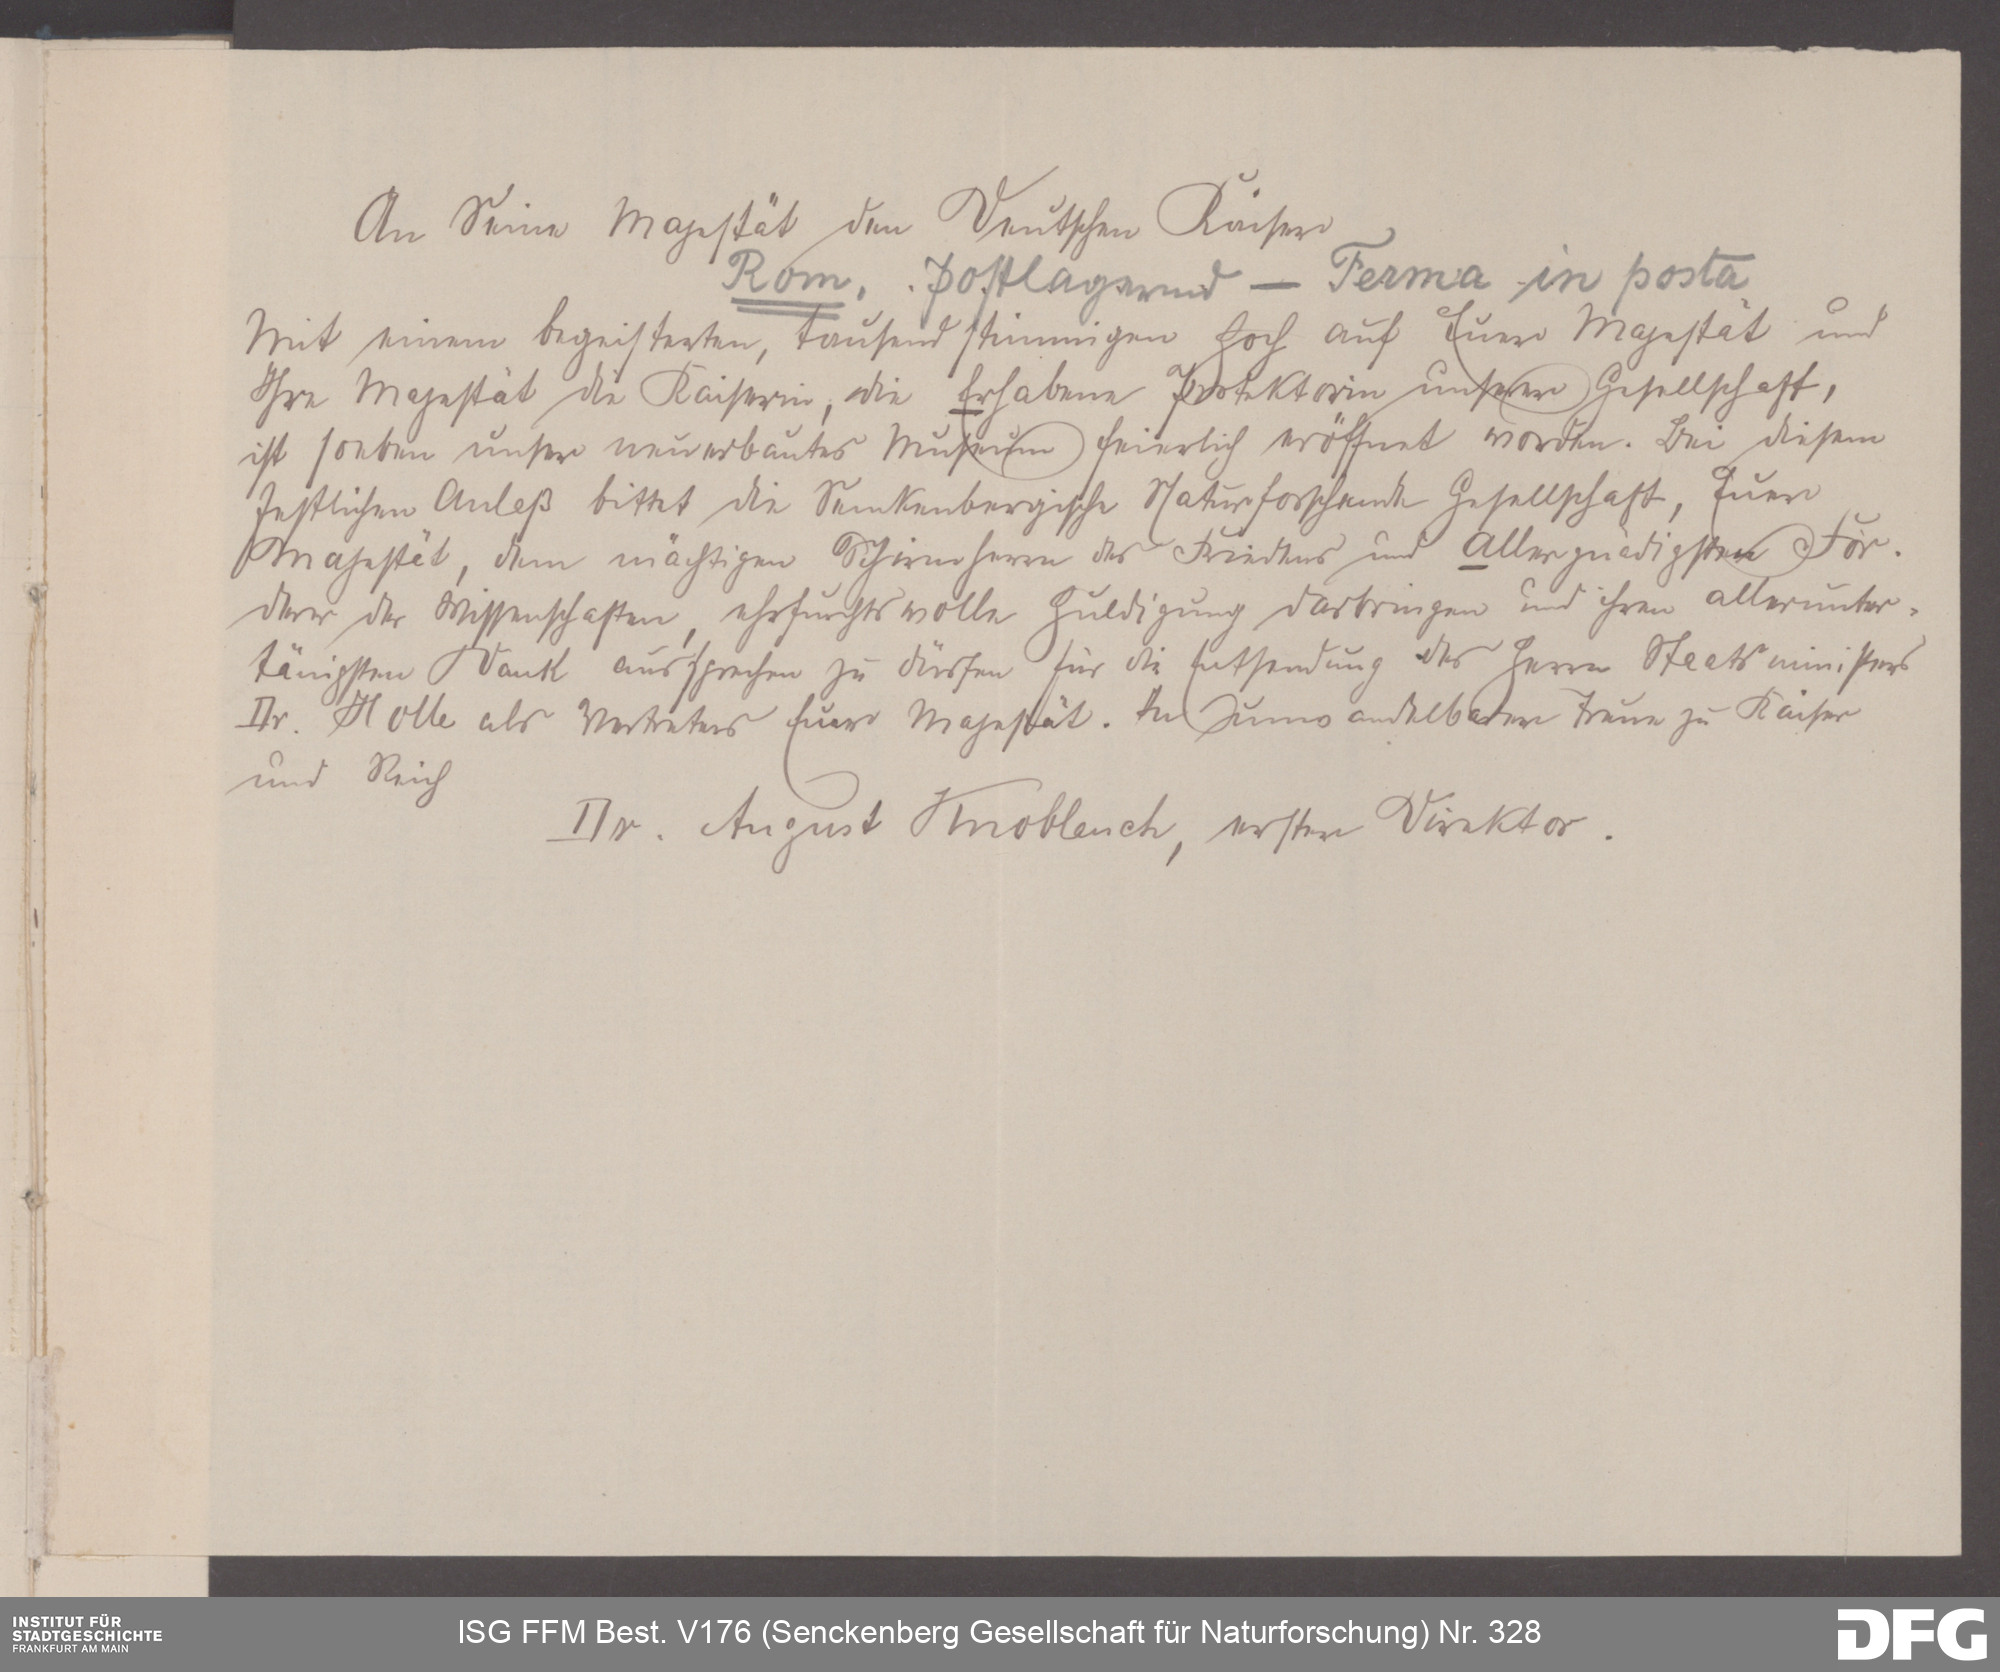 An Seine Majestät den Deutschen Kaiser
Rom, postlagernd — Ferma in posta
Mit einem begeisterten, tausendstimmigen Hoch auf Euer Majestät und
Ihre Majestät die Kaiserin, die Erhabene Protektorin unserer Gesellschaft,
ist soeben unser neuerbautes Museum feierlich eröffnet worden. Bei diesem
festlichen Anlaß bittet die Senckenbergische Naturforschende Gesellschaft, Euer
Majestät, dem mächtigen Schirmherrn des Friedens und Allergnädigsten För-
derer der Wissenschaften, ehrfurchtsvolle Huldigung darbringen und ihren allerunter-
tänigsten Dank aussprechen zu dürfen für die Entsendung des Herrn Staatsministers
Dr. Holle als Vertreters Euer Majestät. In unwandelbarer Treue zu Kaiser
und Reich
Dr. August Knoblauch, erster Direktor.
INSTITUT FÜR
STADTGESCHICHTE
FRANKFURT AM MAIN
ISG FFM Best. V176 (Senckenberg Gesellschaft für Naturforschung) Nr. 328
DFG